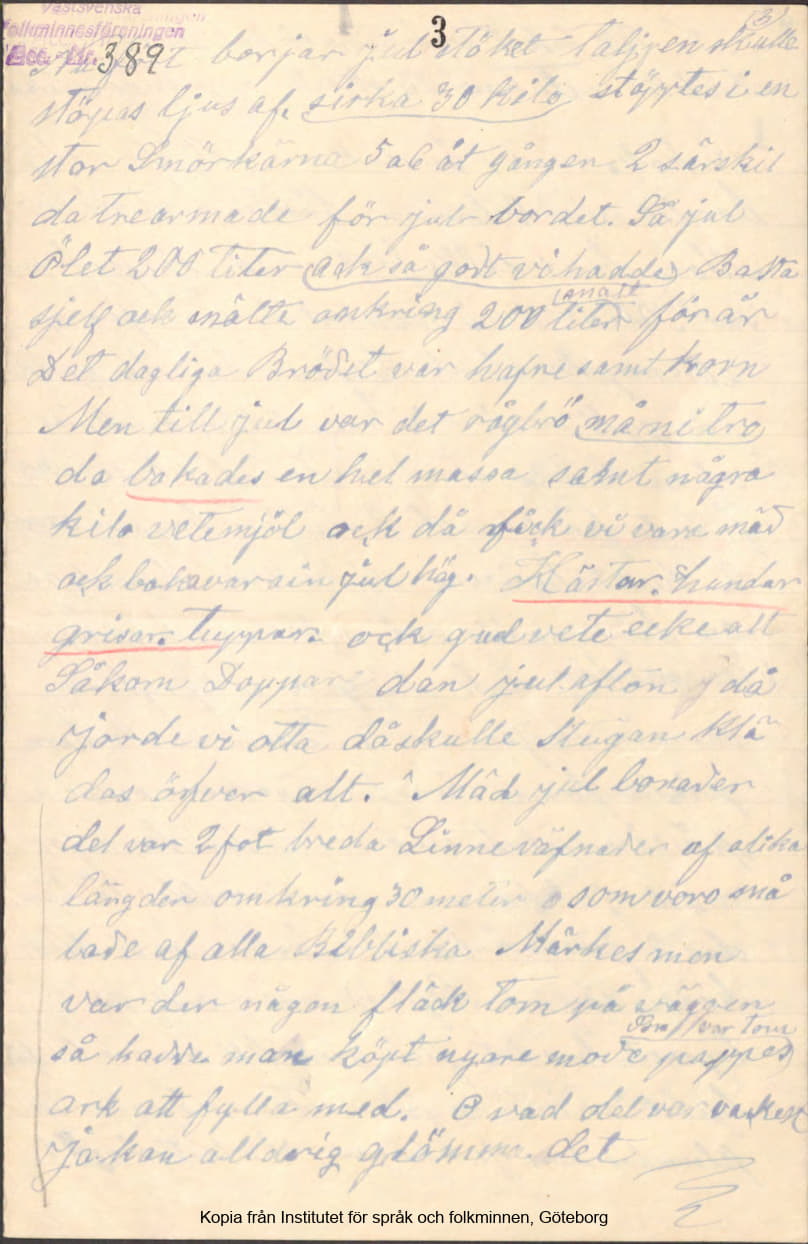 Västsvenska
folkminnesföreningen
Acc. Nr. 389
3
3)
borjar jul stöket Taljgen skulle
stöpas ljus af. sirka 30 kilo stöptes i en
stor Smörkärna 5 a 6 åt gången 2 särskil
da trearmade för jule bordet. Så jul
Ölet 200 liter (ack så gott vi hadde) Baka
sjelf ock mälte omkring 200 liter för år
Det dagliga Brödet var hafre samt korn
Men till jul var det rågbrö må ni tro
da bakades en hel massa samt några
kilo vetemjöl ock då fick vi vara mäd
ock baka var sin jul hög. Hästar. hundar
grisar. tuppar. ock gud vete ecke alt
Så kom Doppar dan jul afton då
jorde vi otta då skulle stugan klä
das öfver alt. Mäd jul bonader
det var 2 fot breda Linne väfnader af olika
längder omkring 30 meter som voro må
lade af alla Bibliska Märkes men
var der någon fläck Tom på väggen
så hadde man köpt nyare mode pappes
ark att fylla med. O vad det var vacker
Ja kan alldrig glömma det
Kopia från Institutet för språk och folkminnen, Göteborg